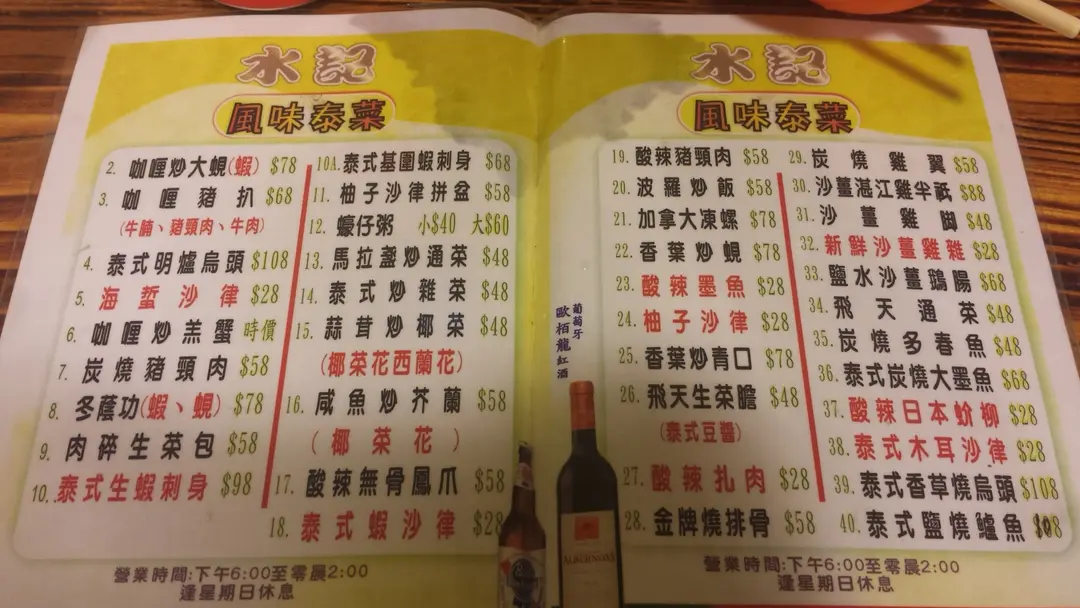 水記
風味泰菜
2. 咖喱炒大蜆(蝦) $78
3. 咖喱豬扒 $68
(牛腩、豬頸肉、牛肉)
4. 泰式明爐烏頭 $108
5. 海蜇沙律 $28
6. 咖喱炒羔蟹 時價
7. 炭燒豬頸肉 $58
8. 冬蔭功(蝦、蜆) $78
9. 肉碎生菜包 $58
10. 泰式生蝦刺身 $98
10A. 泰式基圍蝦刺身 $68
11. 柚子沙律拼盆 $58
12. 蠔仔粥 小$40 大$60
13. 馬拉盞炒通菜 $48
14. 泰式炒雜菜 $48
15. 蒜茸炒椰菜 $48
(椰菜花西蘭花)
16. 咸魚炒芥蘭 $58
(椰菜花)
17. 酸辣無骨鳳爪 $58
18. 泰式蝦沙律 $28
營業時間:下午6:00至零晨2:00
逢星期日休息
葡萄牙
歐栢龍紅酒
水記
風味泰菜
19. 酸辣豬頸肉 $58
20. 波羅炒飯 $58
21. 加拿大凍螺 $78
22. 香葉炒蜆 $78
23. 酸辣墨魚 $28
24. 柚子沙律 $28
25. 香葉炒青口 $78
26. 飛天生菜膽 $48
(泰式豆醬)
27. 酸辣扎肉 $28
28. 金牌燒排骨 $58
29. 炭燒雞翼 $58
30. 沙薑湛江雞半祇 $88
31. 沙薑雞脚 $48
32. 新鮮沙薑雞雜 $28
33. 鹽水沙薑鵝腸 $68
34. 飛天通菜 $48
35. 炭燒多春魚 $48
36. 泰式炭燒大墨魚 $68
37. 酸辣日本蚧柳 $28
38. 泰式木耳沙律 $28
39. 泰式香草燒烏頭 $108
40. 泰式鹽燒鱸魚
營業時間:下午6:00至零晨2:00
逢星期日休息